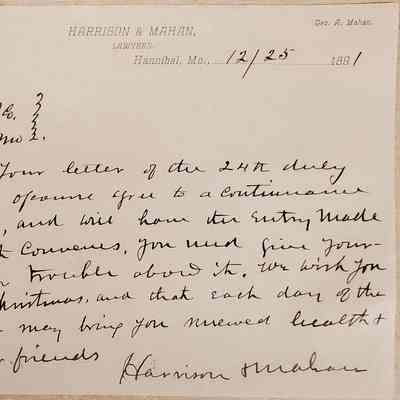 Geo. A. Mahan.
HARRISON & MAHAN,
LAWYERS.
Hannibal, Mo., 12/25 1881
Mo
Your letter of the 24th duly
of course agree to a continuance
, and will have the Entry Made
Convenes, you need give your-
trouble about it. We wish you
Christmas, and that each day of the
may bring you renewed health &
friends
Harrison & Mahan